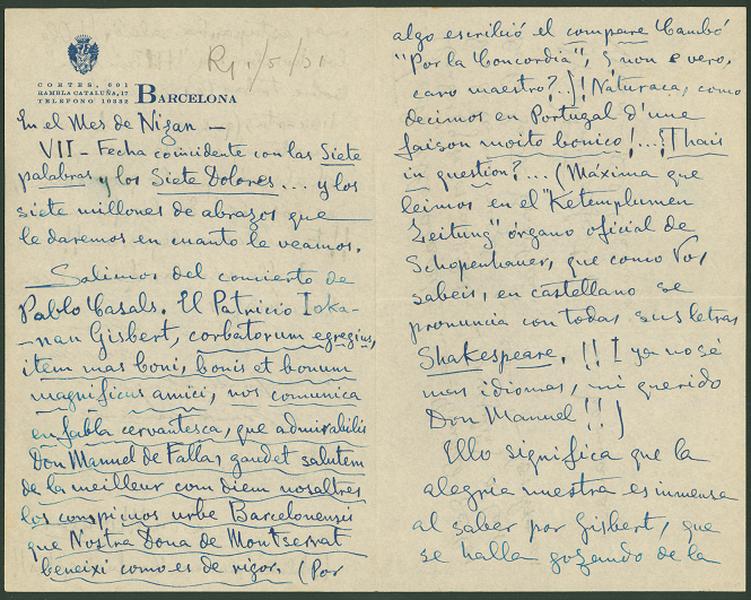 R 1/5/31
CORTES, 601
RAMBLA CATALUÑA, 17
TELEFONO 10332
BARCELONA
En el Mes de Nizan —
VII - Fecha coincidente con las Siete
palabras y los Siete Dolores... y los
siete millones de abrazos que
le daremos en cuanto le veamos.
Salimos del concierto de
Pablo Casals. El Patricio Ioka-
-nan Gisbert, corbatorum egregius,
item mas boni, bonis et bonum
magnificus amici, nos comunica
en fabla cervantesca, que admirabilis
Don Manuel de Falla, gaudet salutem
de la meilleur com diem nosaltres
los conspimos urbe Barcelonensis
que Nostra Dona de Montserrat
beneixi como es de rigor. (Por
algo escribió el compare Cambó
"Por la Concordia", ¿non e vero,
caro maestro?..)! Naturaca, como
decimos en Portugal d'une
faison moito bonico!...¿Thais
in question?... (Máxima que
leimos en el "Ketemplumen
Zeitung" órgano oficial de
Schopenhauer, que como Vos
sabeis, en castellano se
pronuncia con todas sus letras
Shakespeare. !! I ya no sé
mas idiomas, mi querido
Don Manuel!!)
Ello significa que la
alegria nuestra es inmensa
al saber por Gisbert, que
se halla gozando de la